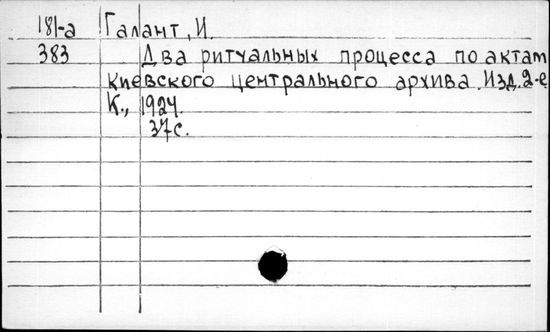 181-а Галант, И.
383 Два ритуальных процесса по актам
Киевского центрального архива. Изд. 2-е
К., 1924.
37с.